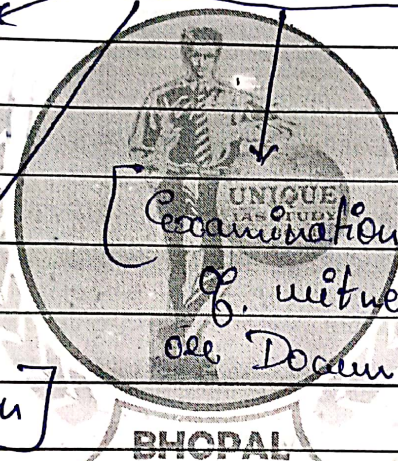 UNIQUE
IAS STUDY
[examination
of witne
or Docum
n]
BHOPAL